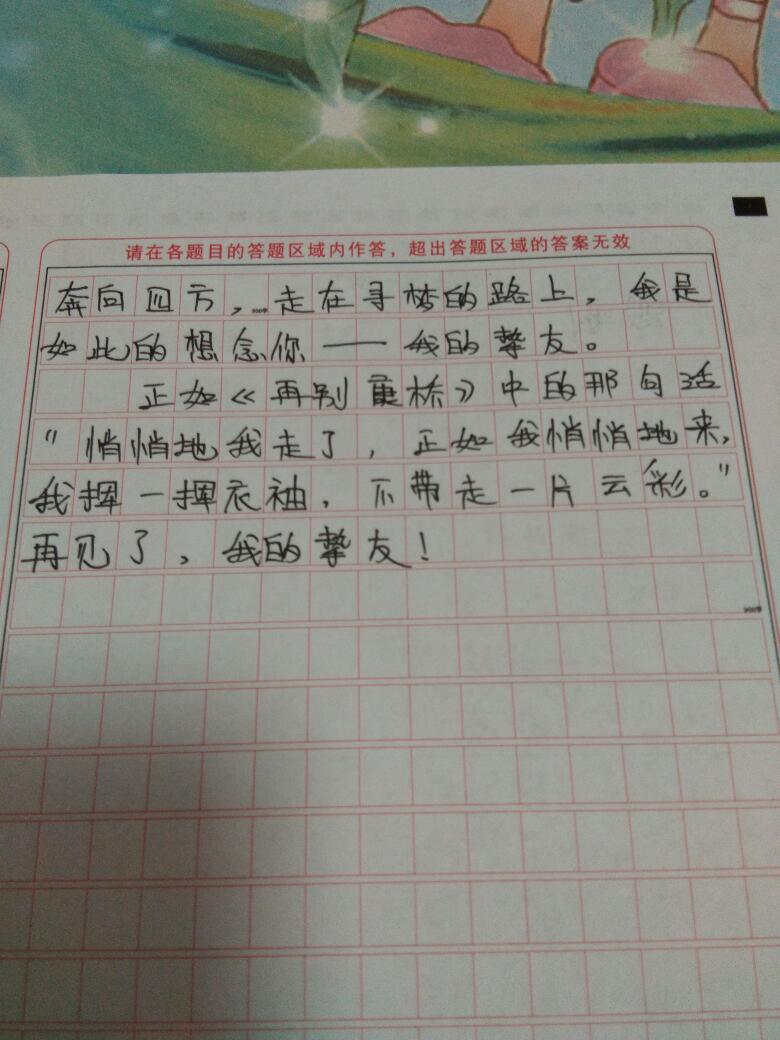 请在各题目的答题区域内作答，超出答题区域的答案无效
奔向四方，走在寻梦的路上，我是
如此的想念你——我的挚友。
正如《再别康桥》中的那句话
“悄悄地我走了，正如我悄悄地来，
我挥一挥衣袖，不带走一片云彩。”
再见了，我的挚友！